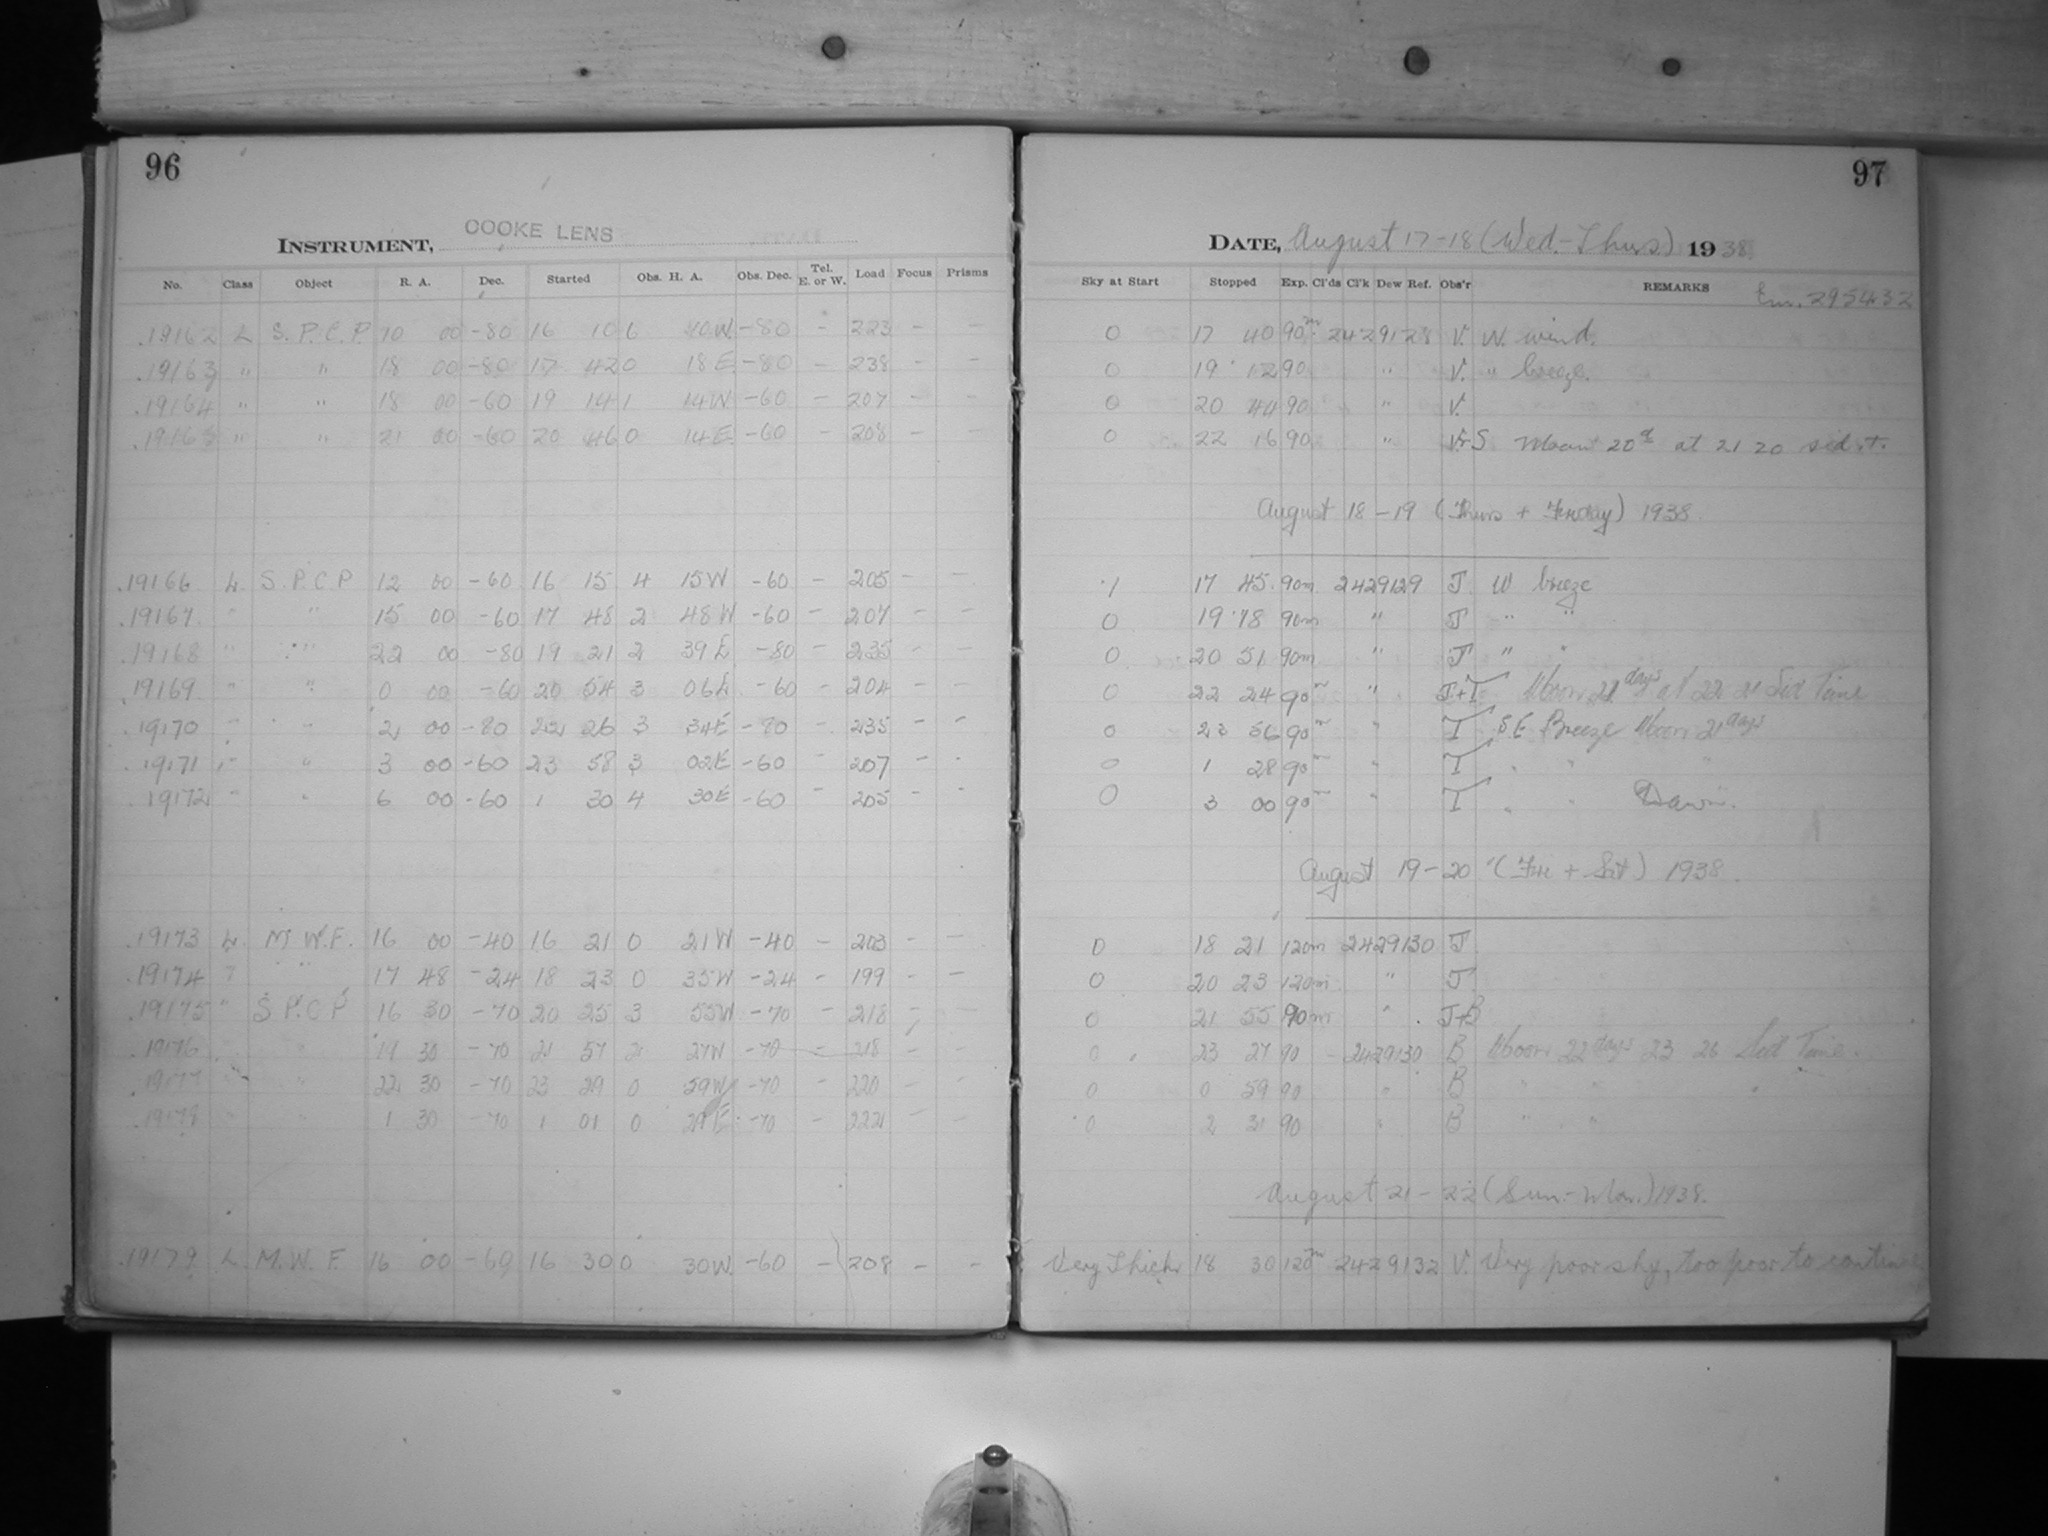 96
INSTRUMENT, COOKE LENS
No. Class Object R. A. Dec. Started Obs. H. A. Obs. Dec. Tel. E. or W. Load Focus Prisms
.19162 L S.P.C.P. 10 00 -80 16 10 6 10W -80 - 223 - -
.19163 " " 18 00 -80 17 42 0 18E -80 - 238 - -
.19164 " " 18 00 -60 19 14 1 14W -60 - 207 - -
.19165 " " 21 00 -60 20 46 0 14E -60 - 208 - -
.19166 L S.P.C.P 12 00 -60 16 15 4 15W -60 - 205 - -
.19167. " " 15 00 -60 17 48 2 48W -60 - 207 - -
.19168 " " 22 00 -80 19 21 2 39E -80 - 235 - -
.19169. " " 0 00 -60 20 54 3 06E -60 - 204 - -
.19170 " " 2 00 -80 22 26 3 34E -80 - 235 - -
.19171 " " 3 00 -60 23 58 3 02E -60 - 207 - -
.19172 " " 6 00 -60 1 30 4 30E -60 - 205 - -
.19173 L M.W.F. 16 00 -40 16 21 0 21W -40 - 203 - -
.19174 " " 17 48 -24 18 23 0 35W -24 - 199 - -
.19175 " S.P.C.P 16 30 -70 20 25 3 55W -70 - 218 - -
.19176 " " 19 30 -70 21 57 2 27W -70 - 218 - -
.19177 " " 22 30 -70 23 29 0 59W -70 - 220 - -
.19178 " " 1 30 -70 1 01 0 29E -70 - 222 - -
.19179 L M.W.F. 16 00 -60 16 30 0 30W. -60 - 208 - -
97
DATE, August 17-18 (Wed.-Thurs.) 1938
Sky at Start Stopped Exp. Cl'ds Cl'k Dew Ref. Obs'r REMARKS Em. 295432
0 17 40 90m. 2429128 V. W. wind.
0 19 12 90 " V. " breeze.
0 20 44 90 " V.
0 22 16 90 " V.+S Moon 20d at 21 20 sid. t.
August 18-19 (Thurs + Friday) 1938.
.1 17 45. 90m. 2429129 J. W breeze
0 19 18 90m " J " "
0 20 51 90m " J " "
0 22 24 90m " J+T. Moon 21 days at 22 21 Sid Time
0 23 56 90m " T S E Breeze Moon 21 days
0 1 28 90m " T " " "
0 3 00 90m " T " " Dawn.
August 19-20 (Fri + Sat) 1938.
0 18 21 120m 2429130 J.
0 20 23 120m " J.
0 21 55 90m " J+B
0 23 27 90 - 2429130 B Moon 22 days 23 26 Sid Time.
0 0 59 90 " B " " "
0 2 31 90 " B " "
August 21-22 (Sun.-Mon.) 1938.
Very Thick 18 30 120m 2429132 V. Very poor sky, too poor to continue